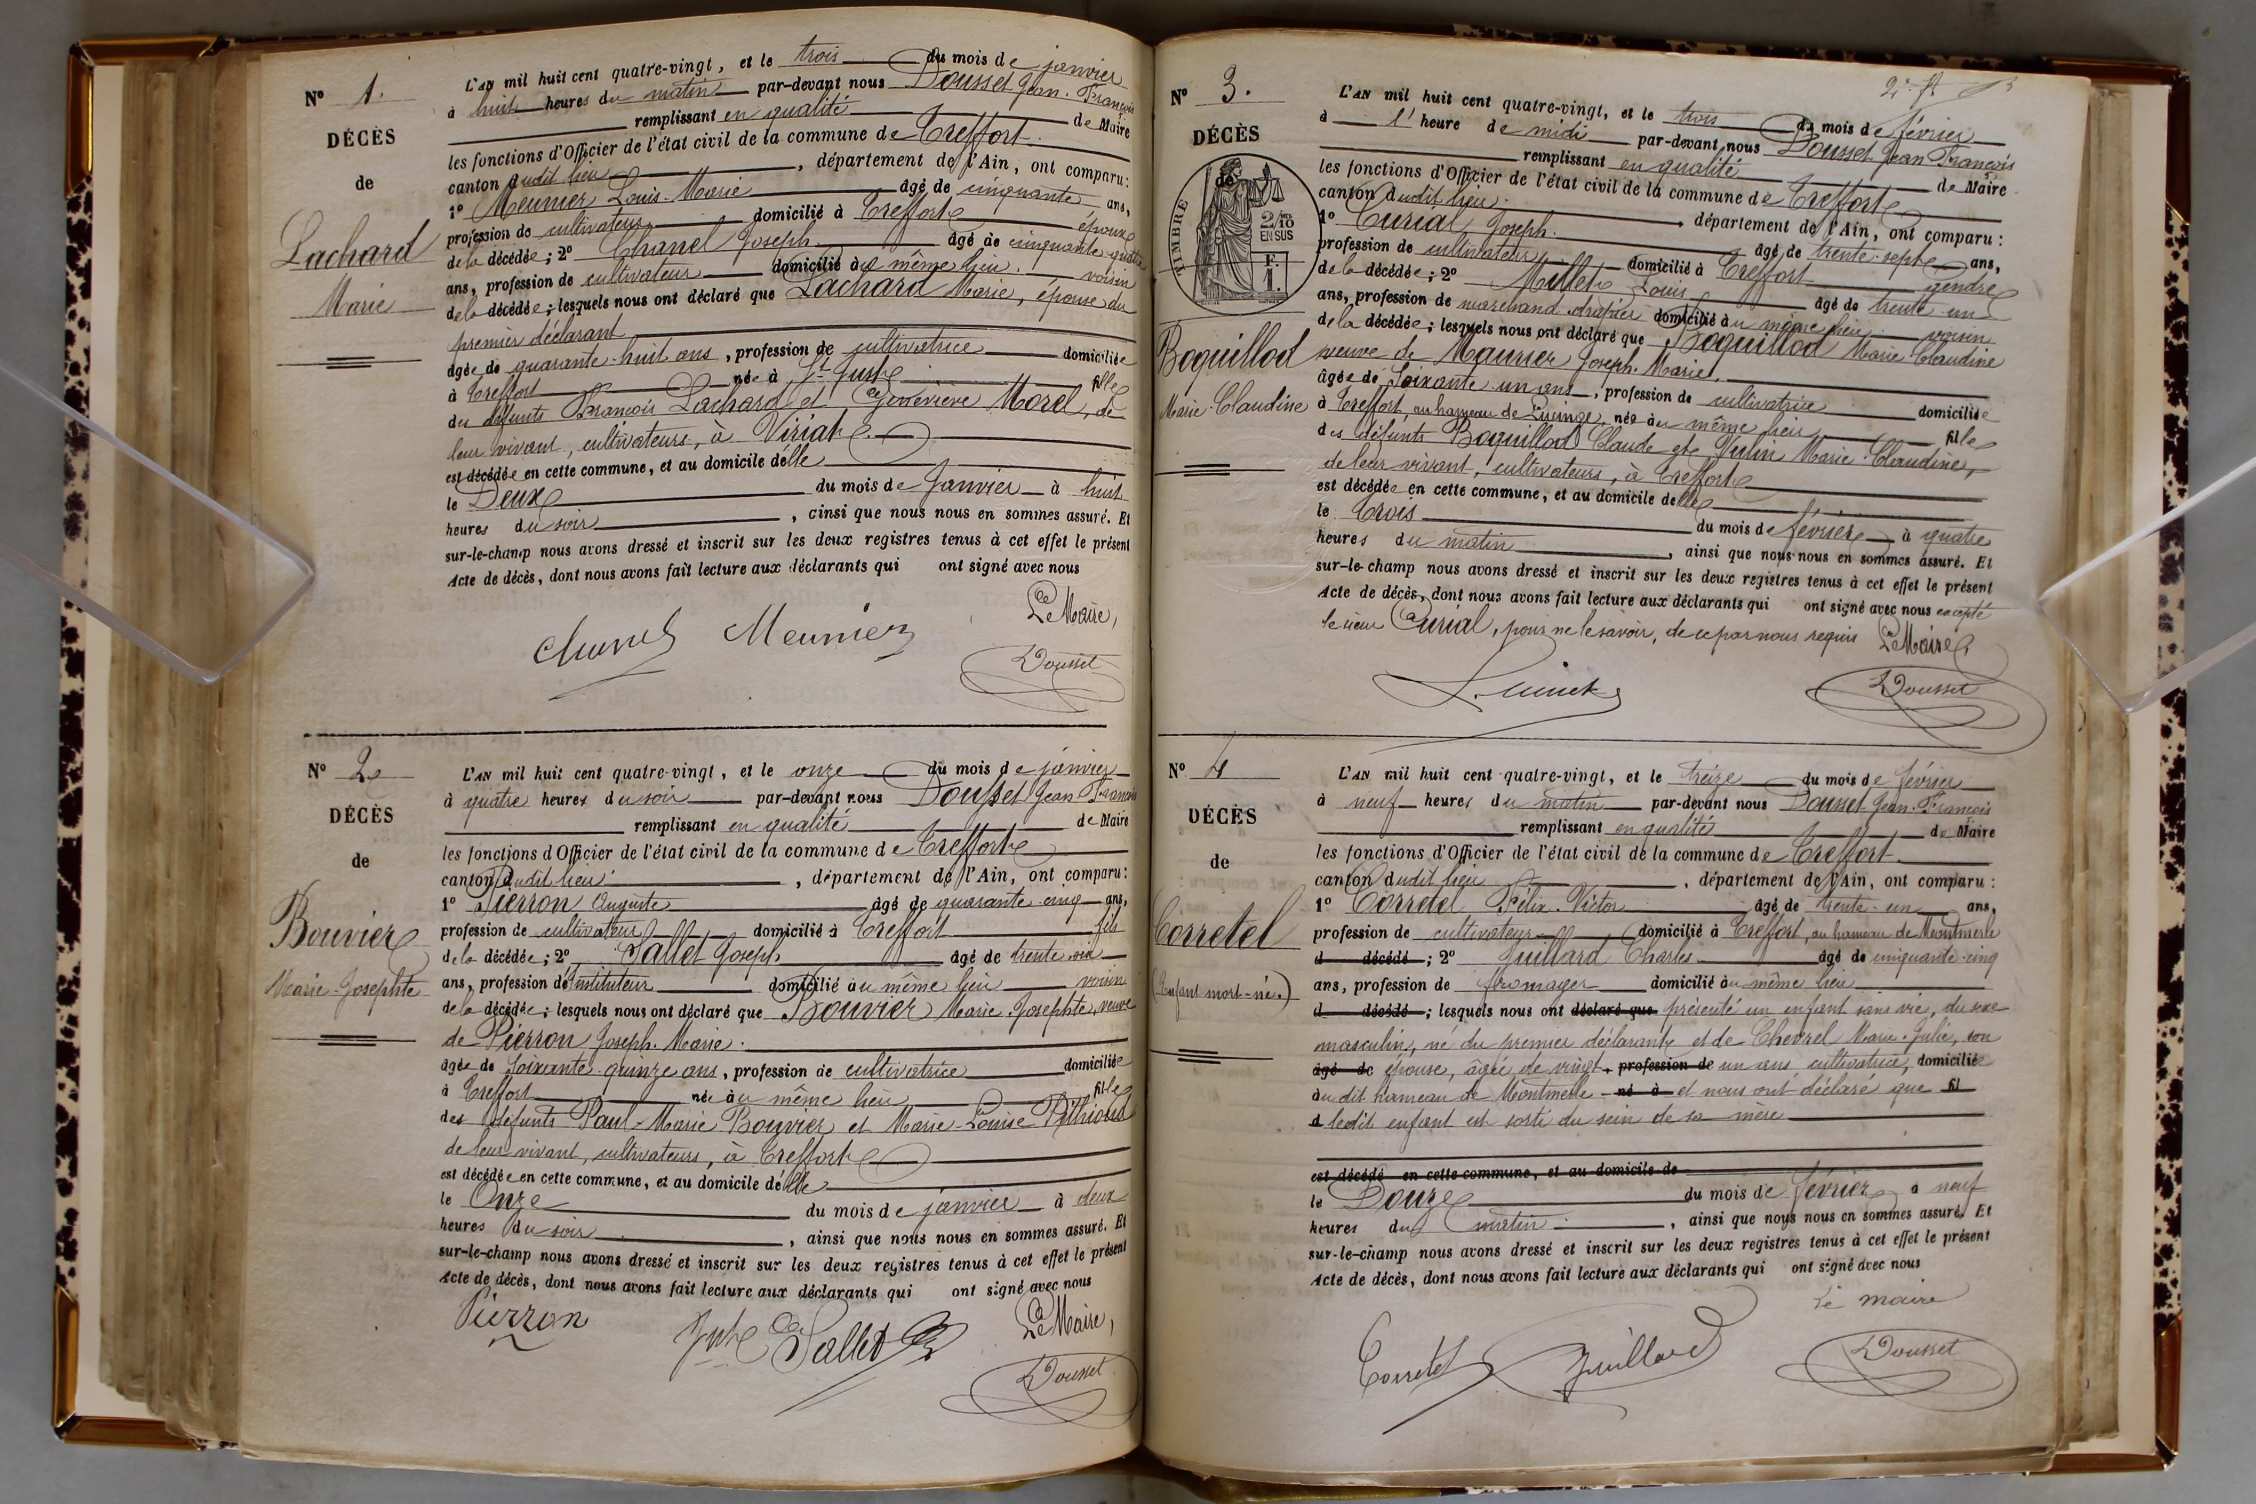 N° 1.
DÉCÈS
de
Lachard
Marie
L'AN mil huit cent quatre-vingt, et le trois du mois de janvier
à huit heures du matin par-devant nous Dousset Jean-François
remplissant en qualité de Maire
les fonctions d'Officier de l'état civil de la commune de Treffort
canton dudit lieu, département de l'Ain, ont comparu :
1° Meunier Louis-Marie âgé de cinquante ans,
profession de cultivateur domicilié à Treffort époux
de la décédée ; 2° Chanel Joseph âgé de cinquante quatre
ans, profession de cultivateur domicilié au même lieu voisin
de la décédée ; lesquels nous ont déclaré que Lachard Marie, épouse du
premier déclarant
âgée de quarante-huit ans, profession de cultivatrice domiciliée
à Treffort née à St Just fille
des défunts François Lachard et Geneviève Morel, de
leur vivant, cultivateurs, à Viriat
est décédée en cette commune, et au domicile d'elle
le Deux du mois de janvier à huit
heures du soir, ainsi que nous nous en sommes assuré. Et
sur-le-champ nous avons dressé et inscrit sur les deux registres tenus à cet effet le présent
Acte de décès, dont nous avons fait lecture aux déclarants qui ont signé avec nous
Le Maire,
Chanel Meunier
Dousset
N° 2
DÉCÈS
de
Bouvier
Marie-Josephte
L'AN mil huit cent quatre-vingt, et le onze du mois de janvier
à quatre heures du soir par-devant nous Dousset Jean-François
remplissant en qualité de Maire
les fonctions d'Officier de l'état civil de la commune de Treffort
canton dudit lieu, département de l'Ain, ont comparu :
1° Pierron Auguste âgé de quarante cinq ans,
profession de cultivateur domicilié à Treffort fils
de la décédée ; 2° Sallet Joseph âgé de trente six
ans, profession d'instituteur domicilié au même lieu voisin
de la décédée ; lesquels nous ont déclaré que Bouvier Marie-Josephte, veuve
de Pierron Joseph-Marie.
âgée de soixante-quinze ans, profession de cultivatrice domiciliée
à Treffort née au même lieu fille
des défunts Paul-Marie Bouvier et Marie-Louise
de leur vivant, cultivateurs, à Treffort
est décédée en cette commune, et au domicile d'elle
le Onze du mois de janvier à deux
heures du soir, ainsi que nous nous en sommes assuré. Et
sur-le-champ nous avons dressé et inscrit sur les deux registres tenus à cet effet le présent
Acte de décès, dont nous avons fait lecture aux déclarants qui ont signé avec nous
Le Maire,
Pierron Sallet
Dousset
N° 3.
DÉCÈS
de
TIMBRE
2/10
EN SUS
F.
1.
Boquillod
Marie-Claudine
L'AN mil huit cent quatre-vingt, et le trois du mois de février
à l'heure de midi par-devant nous Dousset Jean François
remplissant en qualité de Maire
les fonctions d'Officier de l'état civil de la commune de Treffort
canton dudit lieu. département de l'Ain, ont comparu :
1° Curial Joseph. âgé de trente-sept ans,
profession de cultivateur domicilié à Treffort gendre
de la décédée ; 2° Millet Louis âgé de trente-un
ans, profession de marchand drapier domicilié au même lieu voisin
de la décédée ; lesquels nous ont déclaré que Boquillod Marie Claudine
veuve de Maurier Joseph-Marie,
âgée de soixante-un ans, profession de cultivatrice domiciliée
à Treffort, au hameau de Lucinge, née au même lieu fille
des défunts Boquillod Claude et Vulin Marie-Claudine,
de leur vivant, cultivateurs, à Treffort
est décédée en cette commune, et au domicile d'elle
le Trois du mois de février à quatre
heures du matin, ainsi que nous nous en sommes assuré. Et
sur-le-champ nous avons dressé et inscrit sur les deux registres tenus à cet effet le présent
Acte de décès, dont nous avons fait lecture aux déclarants qui ont signé avec nous excepté
le sieur Curial, pour ne le savoir, de ce par nous requis Le Maire
Dousset
N° 4
DÉCÈS
de
Corretel
(Enfant mort-né.)
L'AN mil huit cent quatre-vingt, et le treize du mois de février
à neuf heures du matin par-devant nous Dousset Jean-François
remplissant en qualité de Maire
les fonctions d'Officier de l'état civil de la commune de Treffort
canton dudit lieu, département de l'Ain, ont comparu :
1° Corretel Félix-Victor âgé de trente-un ans,
profession de cultivateur domicilié à Treffort, au hameau de Montmerle
d décédé ; 2° Juillard Charles âgé de cinquante-cinq
ans, profession de fromager domicilié au même lieu
d décédé ; lesquels nous ont déclaré que présenté un enfant sans vie, du sexe
masculin, né du premier déclarant et de Chevrel Marie-Julie, son
âgé de épouse, âgée de vingt- profession de un ans, cultivatrice, domiciliée
au dit hameau de Montmerle né à et nous ont déclaré que fil
d ledit enfant est sorti du sein de sa mère
est décédé en cette commune, et au domicile de
le Douze du mois de février à neuf
heures du matin, ainsi que nous nous en sommes assuré. Et
sur-le-champ nous avons dressé et inscrit sur les deux registres tenus à cet effet le présent
Acte de décès, dont nous avons fait lecture aux déclarants qui ont signé avec nous
Le maire
Corretel Juillard
Dousset